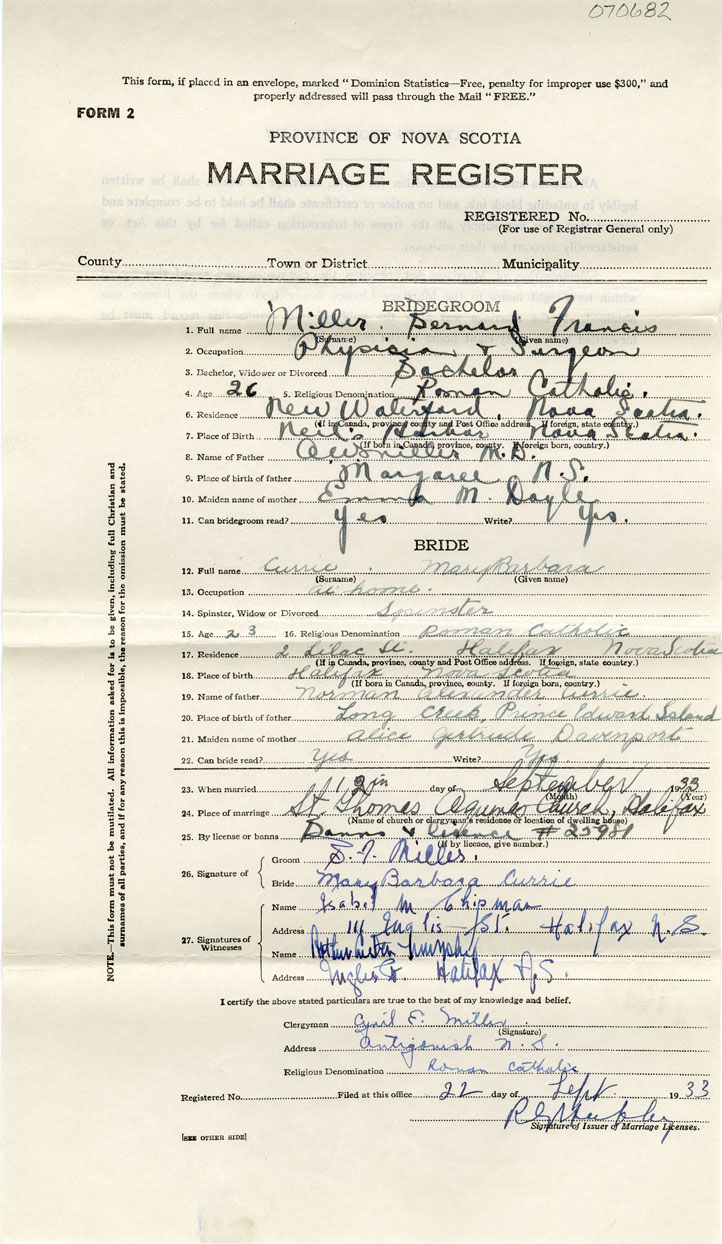 070682
This form, if placed in an envelope, marked "Dominion Statistics—Free, penalty for improper use $300," and
properly addressed will pass through the Mail "FREE."
FORM 2
PROVINCE OF NOVA SCOTIA
MARRIAGE REGISTER
REGISTERED No.
(For use of Registrar General only)
County Town or District Municipality
BRIDEGROOM
1. Full name Miller. Bernard Francis
(Surname) (Given name)
2. Occupation Physician & Surgeon
3. Bachelor, Widower or Divorced Bachelor
4. Age 26 5. Religious Denomination Roman Catholic.
6. Residence New Waterford, Nova Scotia.
(If in Canada, province, county and Post Office address. If foreign, state country.)
7. Place of Birth Neil's Harbor Nova Scotia.
(If born in Canada, province, county. If foreign born, country.)
8. Name of Father A.W. Miller M.D.
9. Place of birth of father Margaree N.S.
10. Maiden name of mother Emma M. Doyle
11. Can bridegroom read? Yes Write? Yes.
BRIDE
12. Full name Currie. Mary Barbara
(Surname) (Given name)
13. Occupation at home.
14. Spinster, Widow or Divorced Spinster
15. Age 23 16. Religious Denomination Roman Catholic
17. Residence 2 Lilac St. Halifax Nova Scotia
(If in Canada, provinces, county and Post Office address. If foreign, state country.)
18. Place of birth Halifax Nova Scotia
(If born in Canada, province, county. If foreign born, country.)
19. Name of father Norman Alexander Currie.
20. Place of birth of father Long Creek, Prince Edward Island
21. Maiden name of mother Alice Gertrude Davenport
22. Can bride read? Yes Write? Yes
23. When married 12th day of September 1933
(Month) (Year)
24. Place of marriage St. Thomas Aquinas Church, Halifax
(Name of church or clergyman's residence or location of dwelling house)
25. By license or banns Banns & licence # 25981
(If by licence, give number.)
26. Signature of
Groom B. F. Miller.
Bride Mary Barbara Currie
27. Signatures of Witnesses
Name Isabel M Chipman
Address Inglis St. Halifax N.S.
Name
Address Inglis St Halifax N.S.
I certify the above stated particulars are true to the best of my knowledge and belief.
Clergyman Cyril E. Miller
(Signature)
Address Antigonish N.S.
Religious Denomination Roman Catholic
Registered No. Filed at this office 22 day of Sept 1933
Signature of Issuer of Marriage Licenses.
[SEE OTHER SIDE]
NOTE.—This form must not be mutilated. All information asked for is to be given, including full Christian and
surnames of all parties, and if for any reason this is impossible, the reason for the omission must be stated.